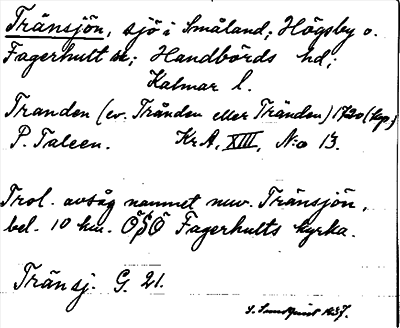 Tränsjön, sjö i Småland; Högsby o.
Fagerhult sn; Handbörds hd;
Kalmar l.
Tranden (ev. Trånden eller Tränden) 1720 (kop.)
P. Taleen. Kr A, XIII, No 13.
Trol. avsåg namnet nuv. Tränsjön,
bel. 10 km. ÖSÖ Fagerhults kyrka.
Tränsj. G. 21.
S. Sundquist 1937.